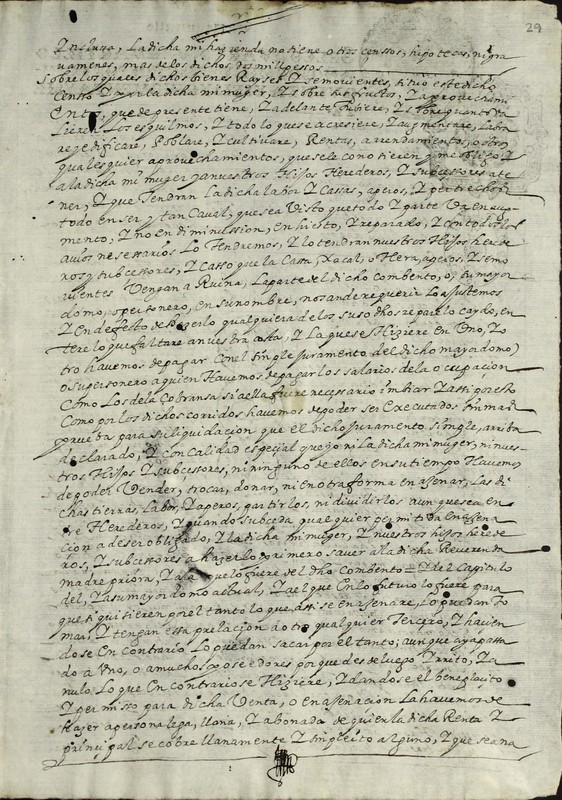 29
Incluya, La dicha mi hazienda no tiene otros censsos, hipotecas, ni gra
vamenes, mas de los dichos dos mill pessos
Sobre los quales dichos bienes Rayses, Y semovientes, situo este dicho
censso Y por la dicha mi muger, Y sobre sus fructos, Y aprovechami
entos, que de presente tiene, Y adelante tubiere, Y sobre quanto Va
lieren Los esquilmos, Y todo lo que se acresiere, Y augmentare, Labra
re, edificare, Poblare, Y cultivare, Rentas, arrendamientos, o otros
qualesquier aprovechamientos, que sele conosieren Y me obligo, Y
a la dicha mi muger Y a nuestros Hijos Herederos, Y subcessores a te
ner, Y que Tendran La dicha labor Y Cassas, aperos, Y pertrechos
todo en ser Y tan Caval, que sea Visto que todo Y parte Va en au
mento, Y no en diminussion, en hiesto, Y reparado, Y con todos los
avios nessesarios Lo Tendremos, Y lo tendran nuestros Hijos here de
ros y subcessores, Y casso que la Cassa, Xacal, o Hera, aperos, Y semo
vientes Vengan a Ruina, La parte del dicho Combento, o su mayor
domo, o personero, en su nombre, nos ande requerir Lo ajustemos
Y En defecto de Hazerlo qualquiera delos susodhos repare lo caydo, en
tere lo que faltare a nuestra costa, Y La que se Hiziere en Uno, Y o
tro havemos de pagar con el simple juramento del dicho mayordomo
o su personero a quien Havemos de pagar los salarios de la ocupacion
Como Los dela Cobransa si a ella fuere necessario imbiar Y assi por esto
Como por los dichos corridos havemos de poder ser Executados sin mas
prueba para su liquidacion que el dicho juramento simple, arriba
declarado, Y con Calidad especial que yo ni La dicha mi muger, ni nues
tros Hijos Y subcessores, ni ninguno de ellos en su tiempo Havemos
de poder Vender, trocar, donar, ni en otra forma enagenar, Las di
chas tierras, Labor, Y aperos, partirlos, ni dividirlos aunque sea en
tre Herederos, Y quando subceda qual quier permitida Enagena
cion a de ser obligado, Y la dicha mi muger, Y nuestros hijos here de
ros, Y subcessores a hazerlo primero saver a la dicha Reverenda
madre priora, Y a la que lo fuere del dho Combento Y del Capitulo
del, Y a su mayordomo actual, Y a el que En lo futuro lo fuere para
que si quisieren por el tanto lo que assi se enagenare, Lo puedan to
mar, Y tengan essa prelacion a otro qualquier Tercero, Y havien
do se En contrario Lo puedan sacar por el tanto; aunque aya passa
do a Uno, o a muchos posse edores porque desde luego Yrrito, Y a
nulo Lo que En contrario se Hiziere, Y dandose el beneplacito
Y permisso para dicha Venta, o enagenacion La havemos de
Hazer a persona lega, llana, Y abonada de quien la dicha Renta Y
principal se cobre llanamente Y sin pleito alguno, Y que sea na